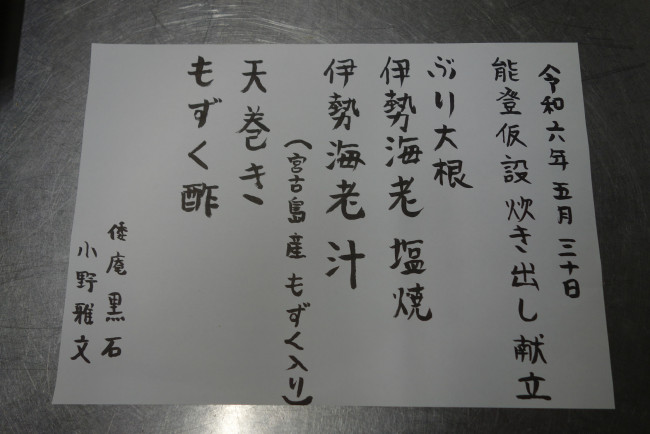 令和六年五月三十日
能登仮設炊き出し献立
ぶり大根
伊勢海老塩焼
伊勢海老汁
(宮古島産もずく入り)
天巻き
もずく酢
倭庵黒石
小野雅文